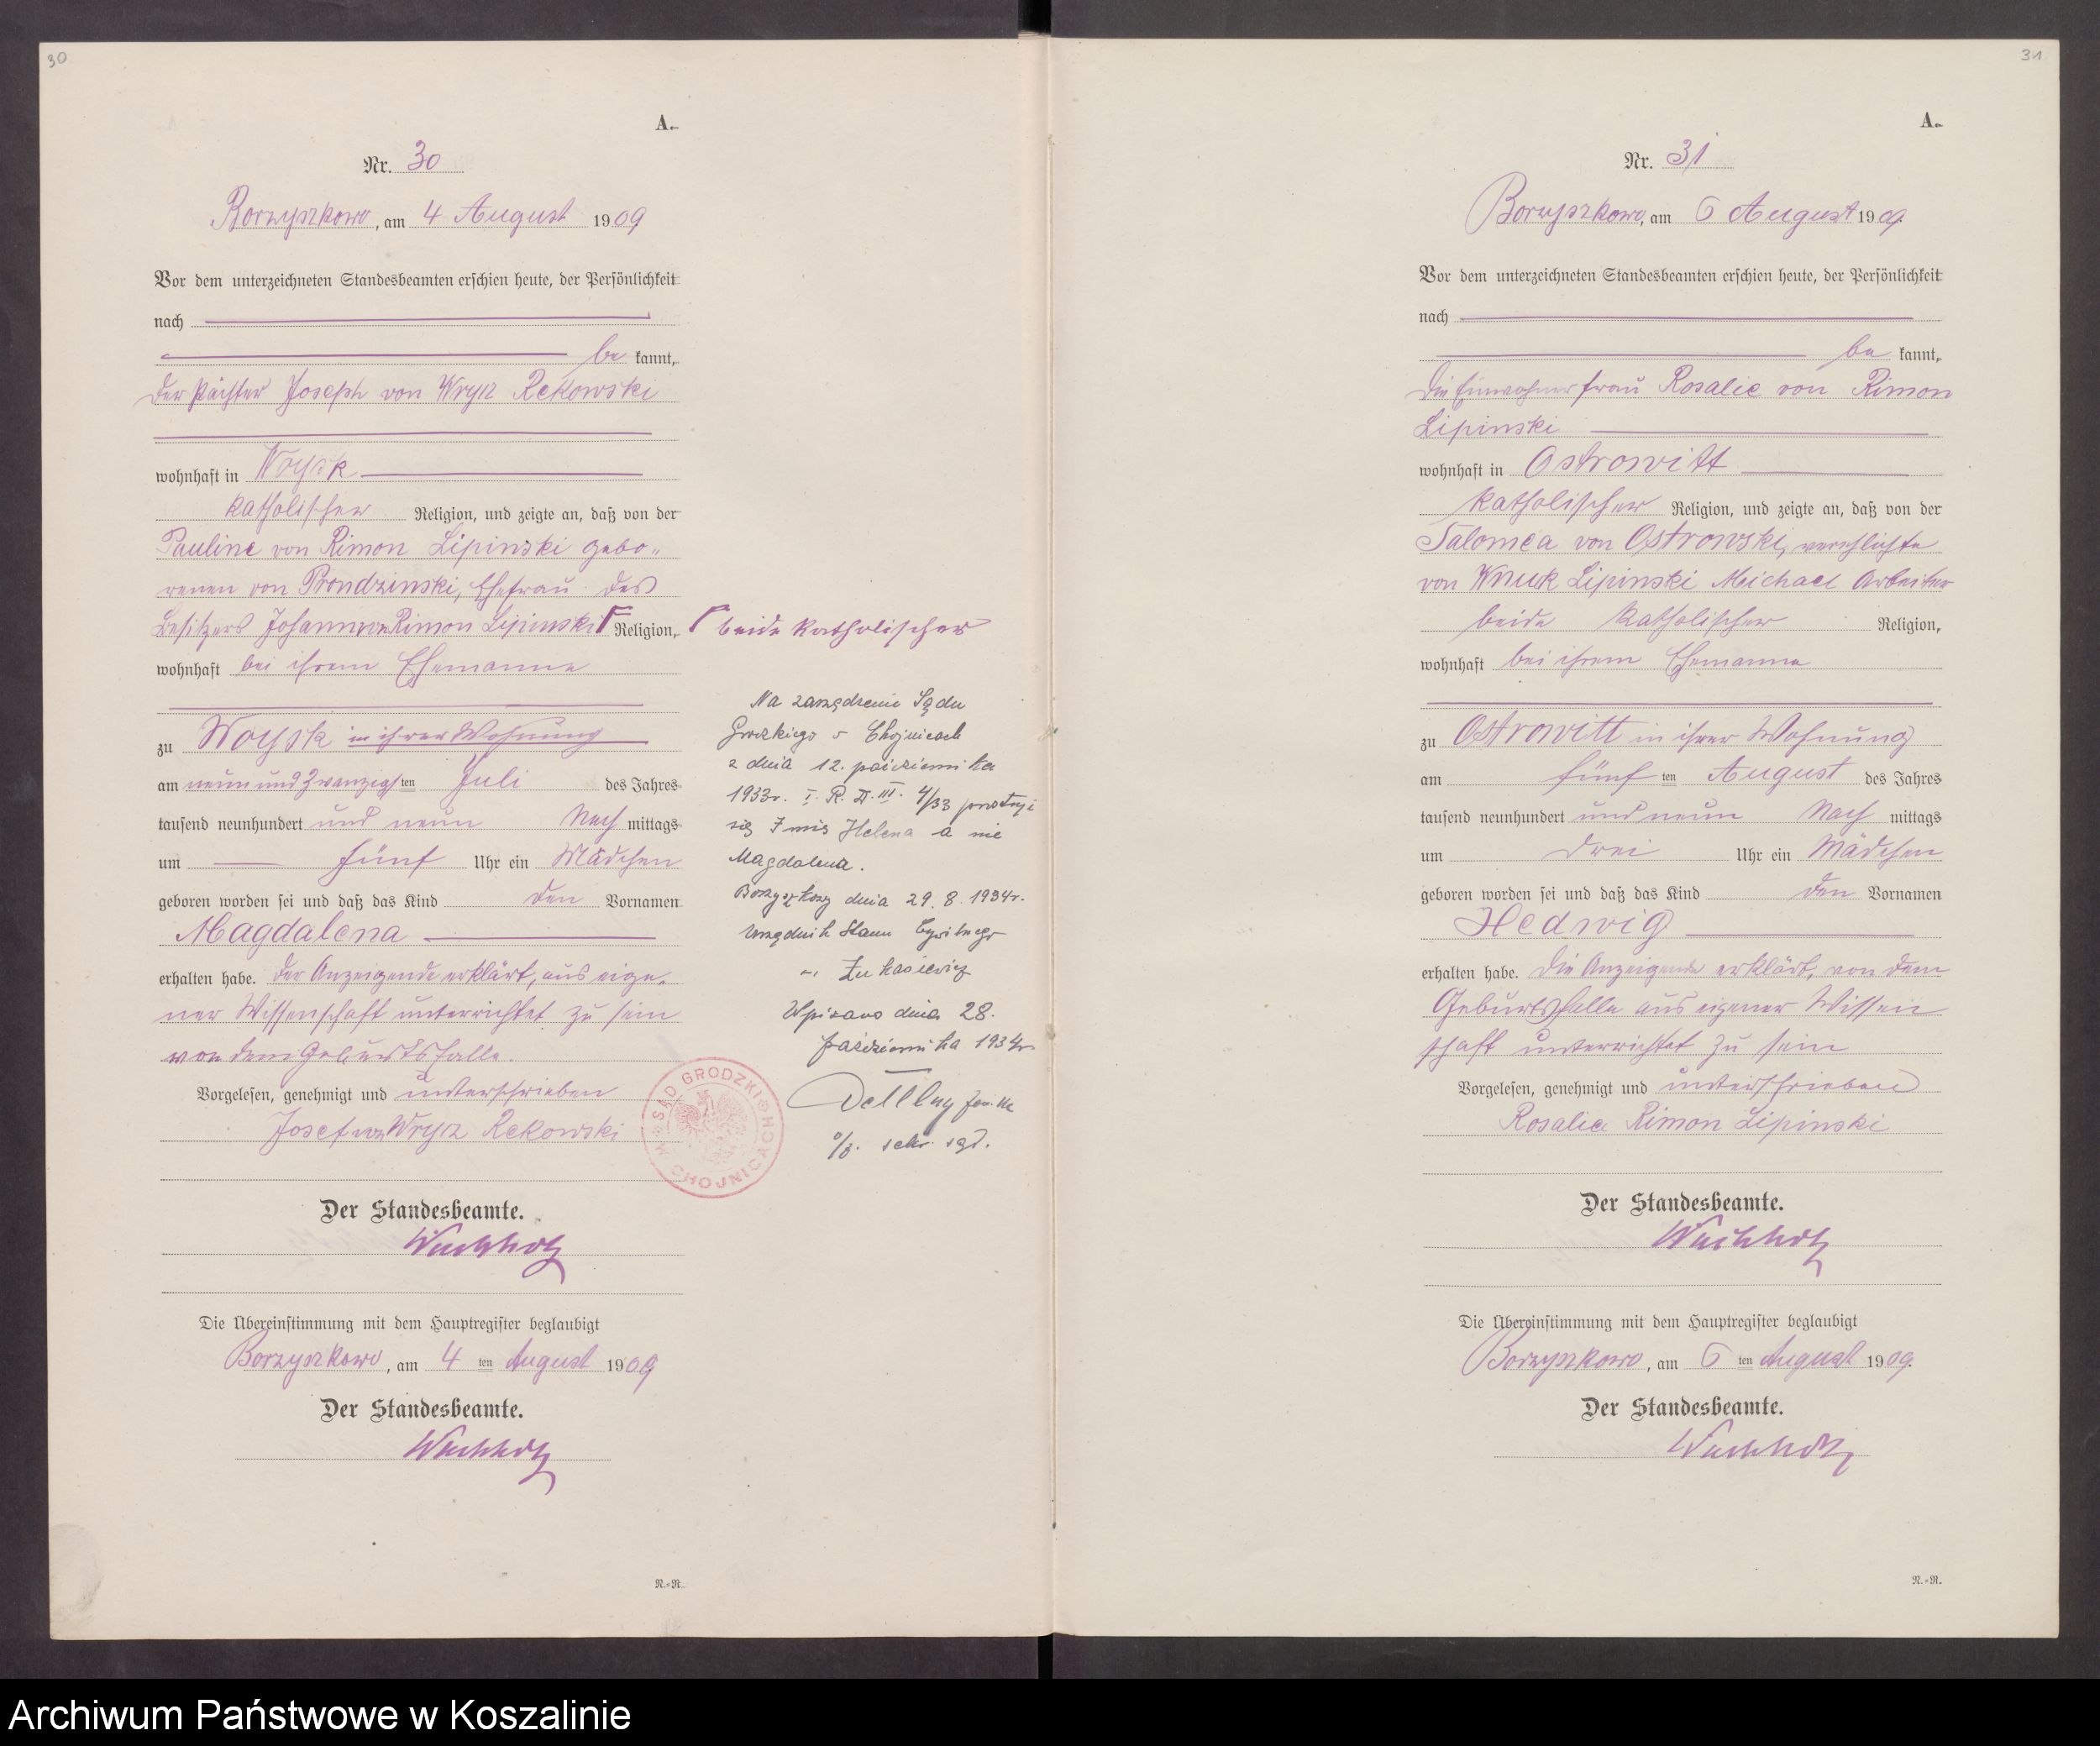 30
A.
Nr. 30
Borzyszkowo, am 4 August 1909
Vor dem unterzeichneten Standesbeamten erschien heute, der Persönlichkeit
nach
be kannt,
der Pächter Joseph von Wrycz Rekowski
wohnhaft in Woysk
katholischer Religion, und zeigte an, daß von der
Pauline von Rimon Lipinski gebo-
renen von Prondzinski, Ehefrau des
Besitzers Johann von Rimon Lipinski Γ Religion,
wohnhaft bei ihrem Ehemanne
zu Woysk in ihrer Wohnung
am neun und zwanzigsten Juli des Jahres
tausend neunhundert und neun Nach mittags
um fünf Uhr ein Mädchen
geboren worden sei und daß das Kind den Vornamen
Magdalena
erhalten habe. Der Anzeigende erklärt, aus eige-
ner Wissenschaft unterrichtet zu sein
von dem Geburtsfalle.
Vorgelesen, genehmigt und unterschrieben
Josef von Wrycz Rekowski
Der Standesbeamte.
Wachholz
Die Übereinstimmung mit dem Hauptregister beglaubigt
Borzyszkowo, am 4 ten August 1909
Der Standesbeamte.
Wachholz
R.=R.
Γ beide katholischer
Na zarządzenie Sądu
Grodzkiego w Chojnicach
z dnia 12. października
1933r. I. R. D. III. 4/33 prostuje
się Imię Helena a nie
Magdalena.
Borzyszkowy dnia 29.8.1934r.
Urzędnik Stanu Cywilnego
Łukasiewicz
Wpisano dnia 28.
października 1934r.
sekr. sąd.
SĄD GRODZKI W CHOJNICACH
31
A.
Nr. 31
Borzyszkowo, am 6 August 1909.
Vor dem unterzeichneten Standesbeamten erschien heute, der Persönlichkeit
nach
be kannt,
die Einwohnerfrau Rosalie von Rimon
Lipinski
wohnhaft in Ostrowitt
katholischer Religion, und zeigte an, daß von der
Salomea von Ostrowski, verehlichte
von Wnuk Lipinski Michael Arbeiter
beide katholischer Religion,
wohnhaft bei ihrem Ehemanne
zu Ostrowitt in ihrer Wohnung
am fünf ten August des Jahres
tausend neunhundert und neun Nach mittags
um drei Uhr ein Mädchen
geboren worden sei und daß das Kind den Vornamen
Hedwig
erhalten habe. Die Anzeigende erklärt, von dem
Geburtsfalle aus eigener Wissen
schaft unterrichtet zu sein
Vorgelesen, genehmigt und unterschrieben
Rosalie Rimon Lipinski
Der Standesbeamte.
Wachholz
Die Übereinstimmung mit dem Hauptregister beglaubigt
Borzyszkowo, am 6 ten August 1909.
Der Standesbeamte.
Wachholz
R.=R.
Archiwum Państwowe w Koszalinie